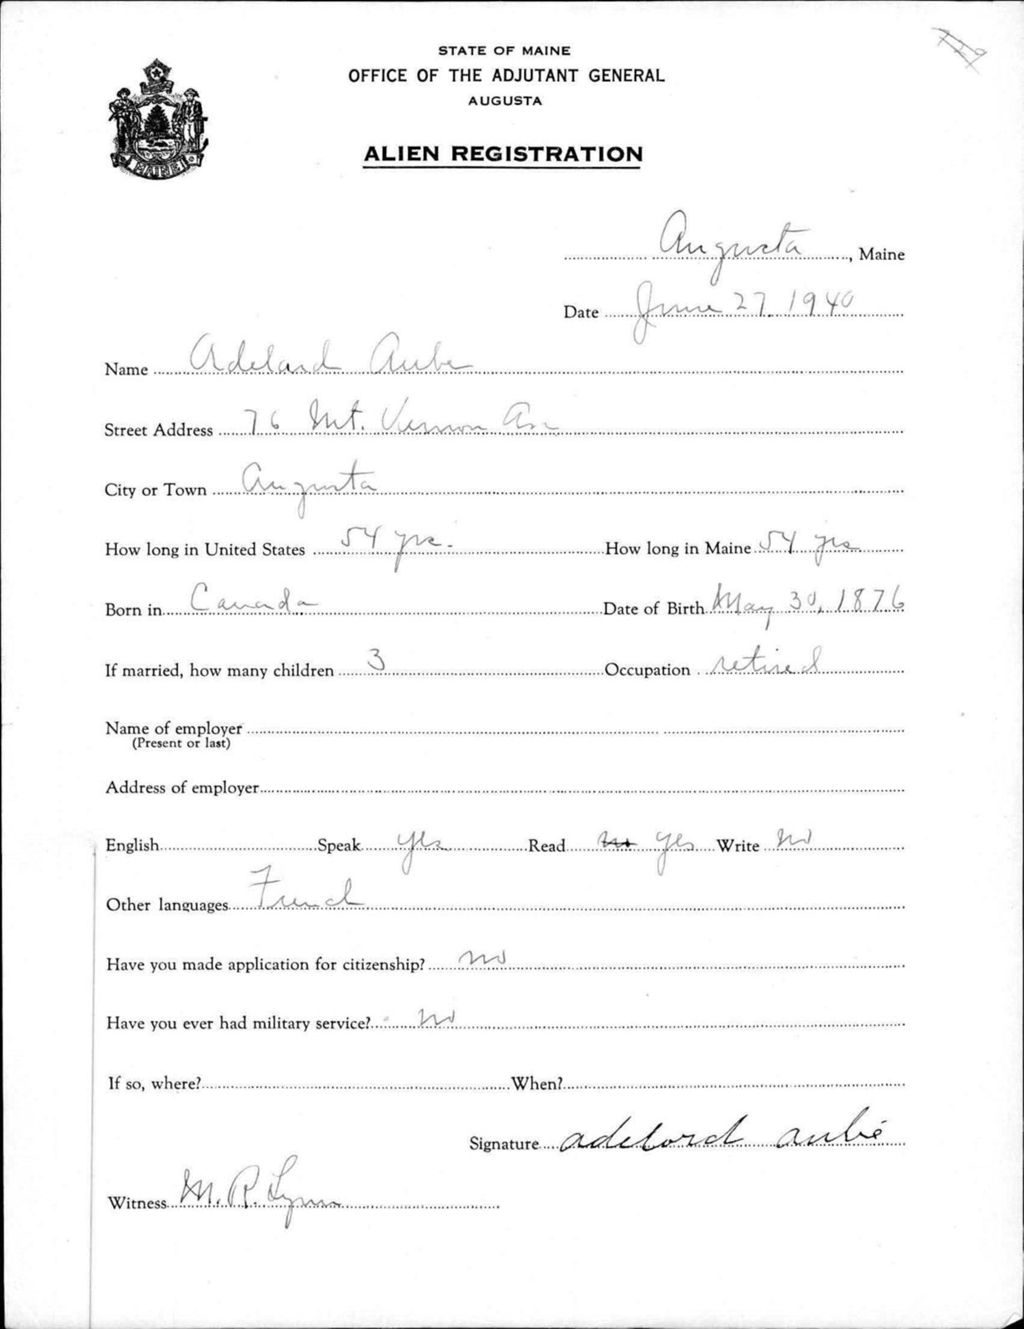 STATE OF MAINE
OFFICE OF THE ADJUTANT GENERAL
AUGUSTA
ALIEN REGISTRATION
MAINE
Augusta, Maine
Date June 27, 1940
Name Adelard Aube
Street Address 76 Mt. Vernon Av
City or Town Augusta
How long in United States 54 yrs. How long in Maine 54 yrs
Born in Canada Date of Birth May 30, 1876
If married, how many children 3 Occupation retired
Name of employer
(Present or last)
Address of employer
English Speak yes Read no yes Write no
Other languages French
Have you made application for citizenship? no
Have you ever had military service? no
If so, where? When?
Signature adelord aubé
Witness M. R. Lynn